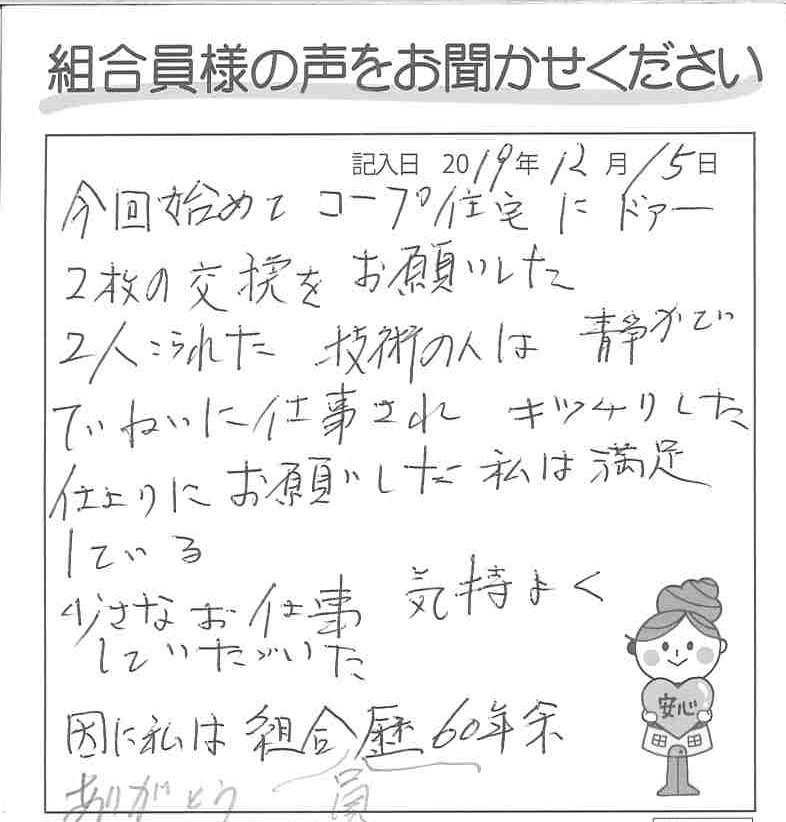 組合員様の声をお聞かせください
記入日 2019年12月15日
今回始めて コープ住宅に ドアー
2枚の交換を お願いした
2人こられた 技術の人は 静かで
ていねいに仕事され キッチリした
仕上りにお願いした 私は満足
している
少さなお仕事 気持よく
していただいた
因に私は 組合員歴 60年余
ありがとう
安心